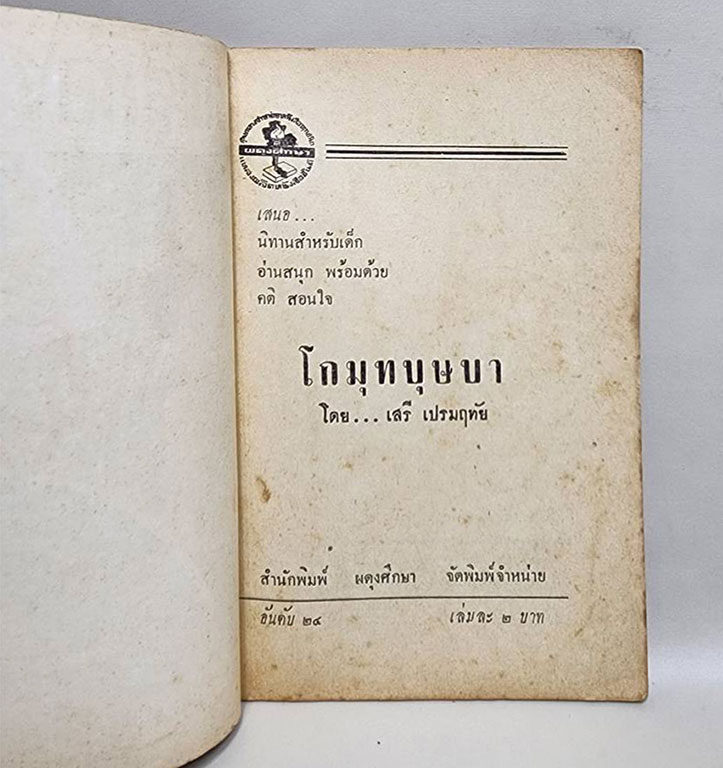 ผดุงศึกษา
เสนอ...
นิทานสำหรับเด็ก
อ่านสนุก พร้อมด้วย
คติ สอนใจ
โกมุทบุษบา
โดย... เสรี เปรมฤทัย
สำนักพิมพ์ ผดุงศึกษา จัดพิมพ์จำหน่าย
อันดับ ๒๔ เล่มละ ๒ บาท